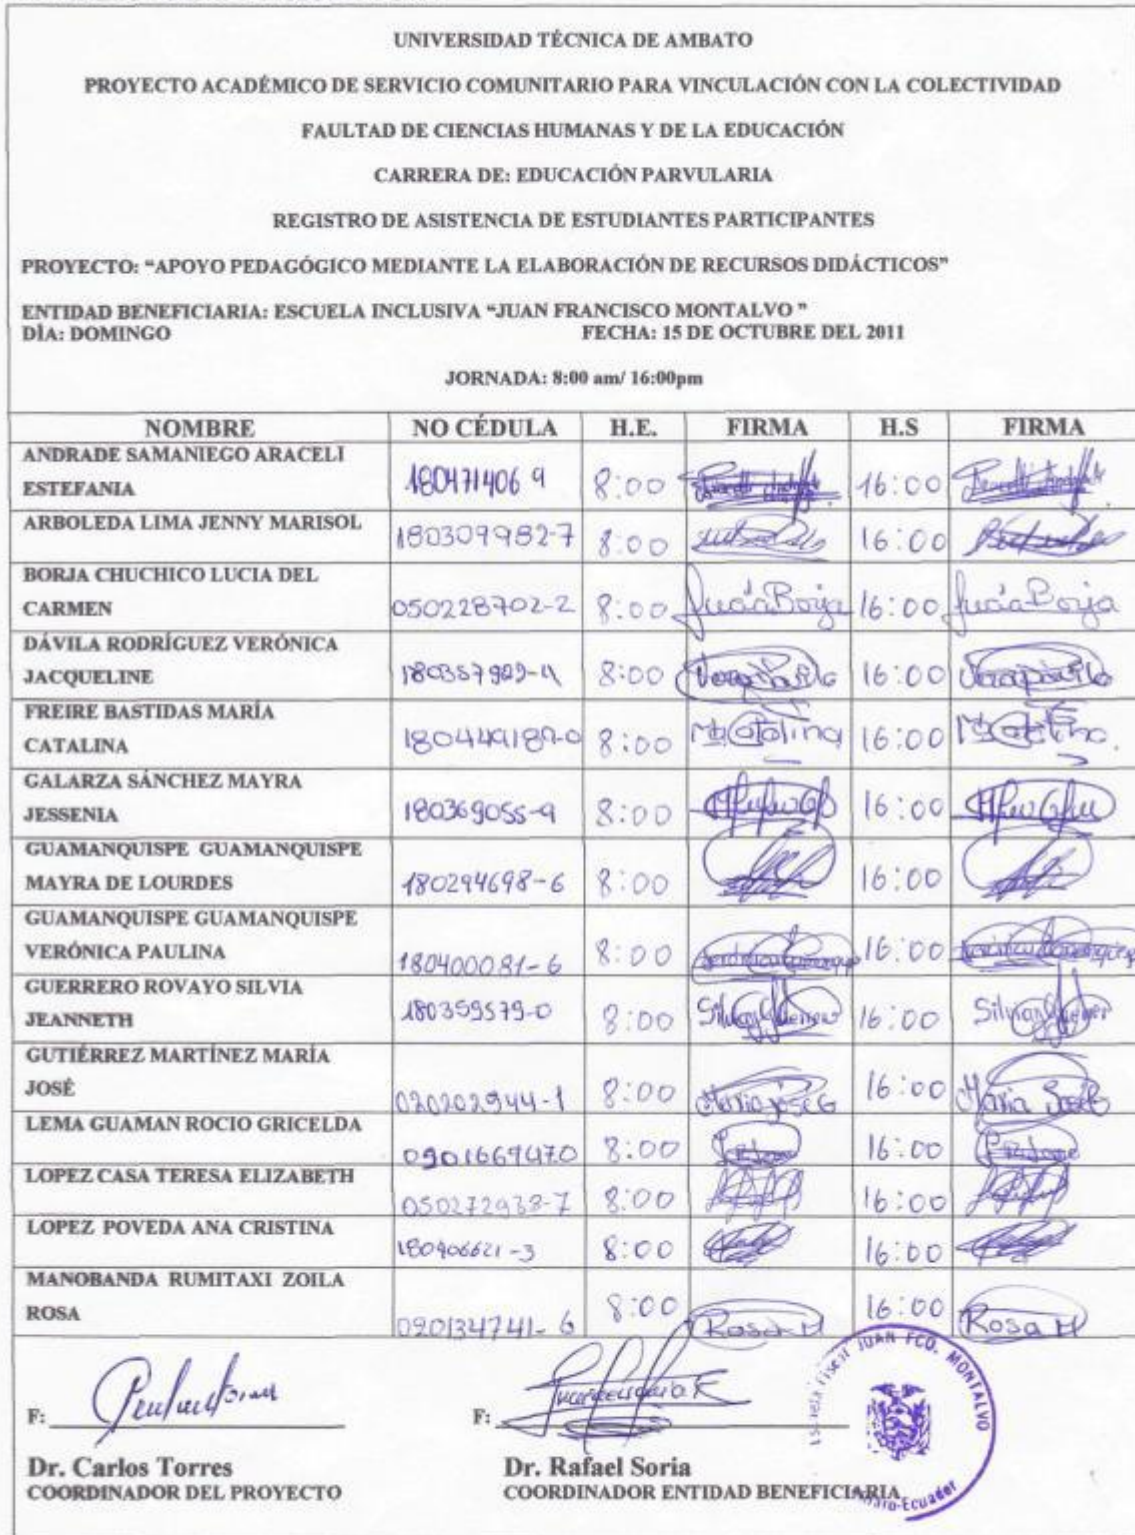 UNIVERSIDAD TÉCNICA DE AMBATO
PROYECTO ACADÉMICO DE SERVICIO COMUNITARIO PARA VINCULACIÓN CON LA COLECTIVIDAD
FAULTAD DE CIENCIAS HUMANAS Y DE LA EDUCACIÓN
CARRERA DE: EDUCACIÓN PARVULARIA
REGISTRO DE ASISTENCIA DE ESTUDIANTES PARTICIPANTES
PROYECTO: “APOYO PEDAGÓGICO MEDIANTE LA ELABORACIÓN DE RECURSOS DIDÁCTICOS”
ENTIDAD BENEFICIARIA: ESCUELA INCLUSIVA “JUAN FRANCISCO MONTALVO ”
DÌA: DOMINGO FECHA: 15 DE OCTUBRE DEL 2011
JORNADA: 8:00 am/ 16:00pm
NOMBRE NO CÉDULA H.E. FIRMA H.S FIRMA
ANDRADE SAMANIEGO ARACELI
ESTEFANIA 180471406 9 8:00 16:00
ARBOLEDA LIMA JENNY MARISOL 180309982-7 8:00 16:00
BORJA CHUCHICO LUCIA DEL
CARMEN 050228702-2 8:00 Lucía Borja 16:00 Lucía Borja
DÁVILA RODRÍGUEZ VERÓNICA
JACQUELINE 8:00 16:00
FREIRE BASTIDAS MARÍA
CATALINA 8:00 Ma Catalina 16:00 Ma Catalina
GALARZA SÁNCHEZ MAYRA
JESSENIA 180369055-9 8:00 16:00
GUAMANQUISPE GUAMANQUISPE
MAYRA DE LOURDES 180294698-6 8:00 16:00
GUAMANQUISPE GUAMANQUISPE
VERÓNICA PAULINA 180400081-6 8:00 16:00
GUERRERO ROVAYO SILVIA
JEANNETH 180359579-0 8:00 16:00
GUTIÉRREZ MARTÍNEZ MARÍA
JOSÉ 020202944-1 8:00 María José G 16:00 María José G
LEMA GUAMAN ROCIO GRICELDA 8:00 16:00
LOPEZ CASA TERESA ELIZABETH 050272938-7 8:00 16:00
LOPEZ POVEDA ANA CRISTINA 180406621-3 8:00 16:00
MANOBANDA RUMITAXI ZOILA
ROSA 020134741-6 8:00 Rosa M 16:00 Rosa M
F: F:
Dr. Carlos Torres Dr. Rafael Soria
COORDINADOR DEL PROYECTO COORDINADOR ENTIDAD BENEFICIARIA
Escuela Fiscal JUAN FCO. MONTALVO
Ecuador